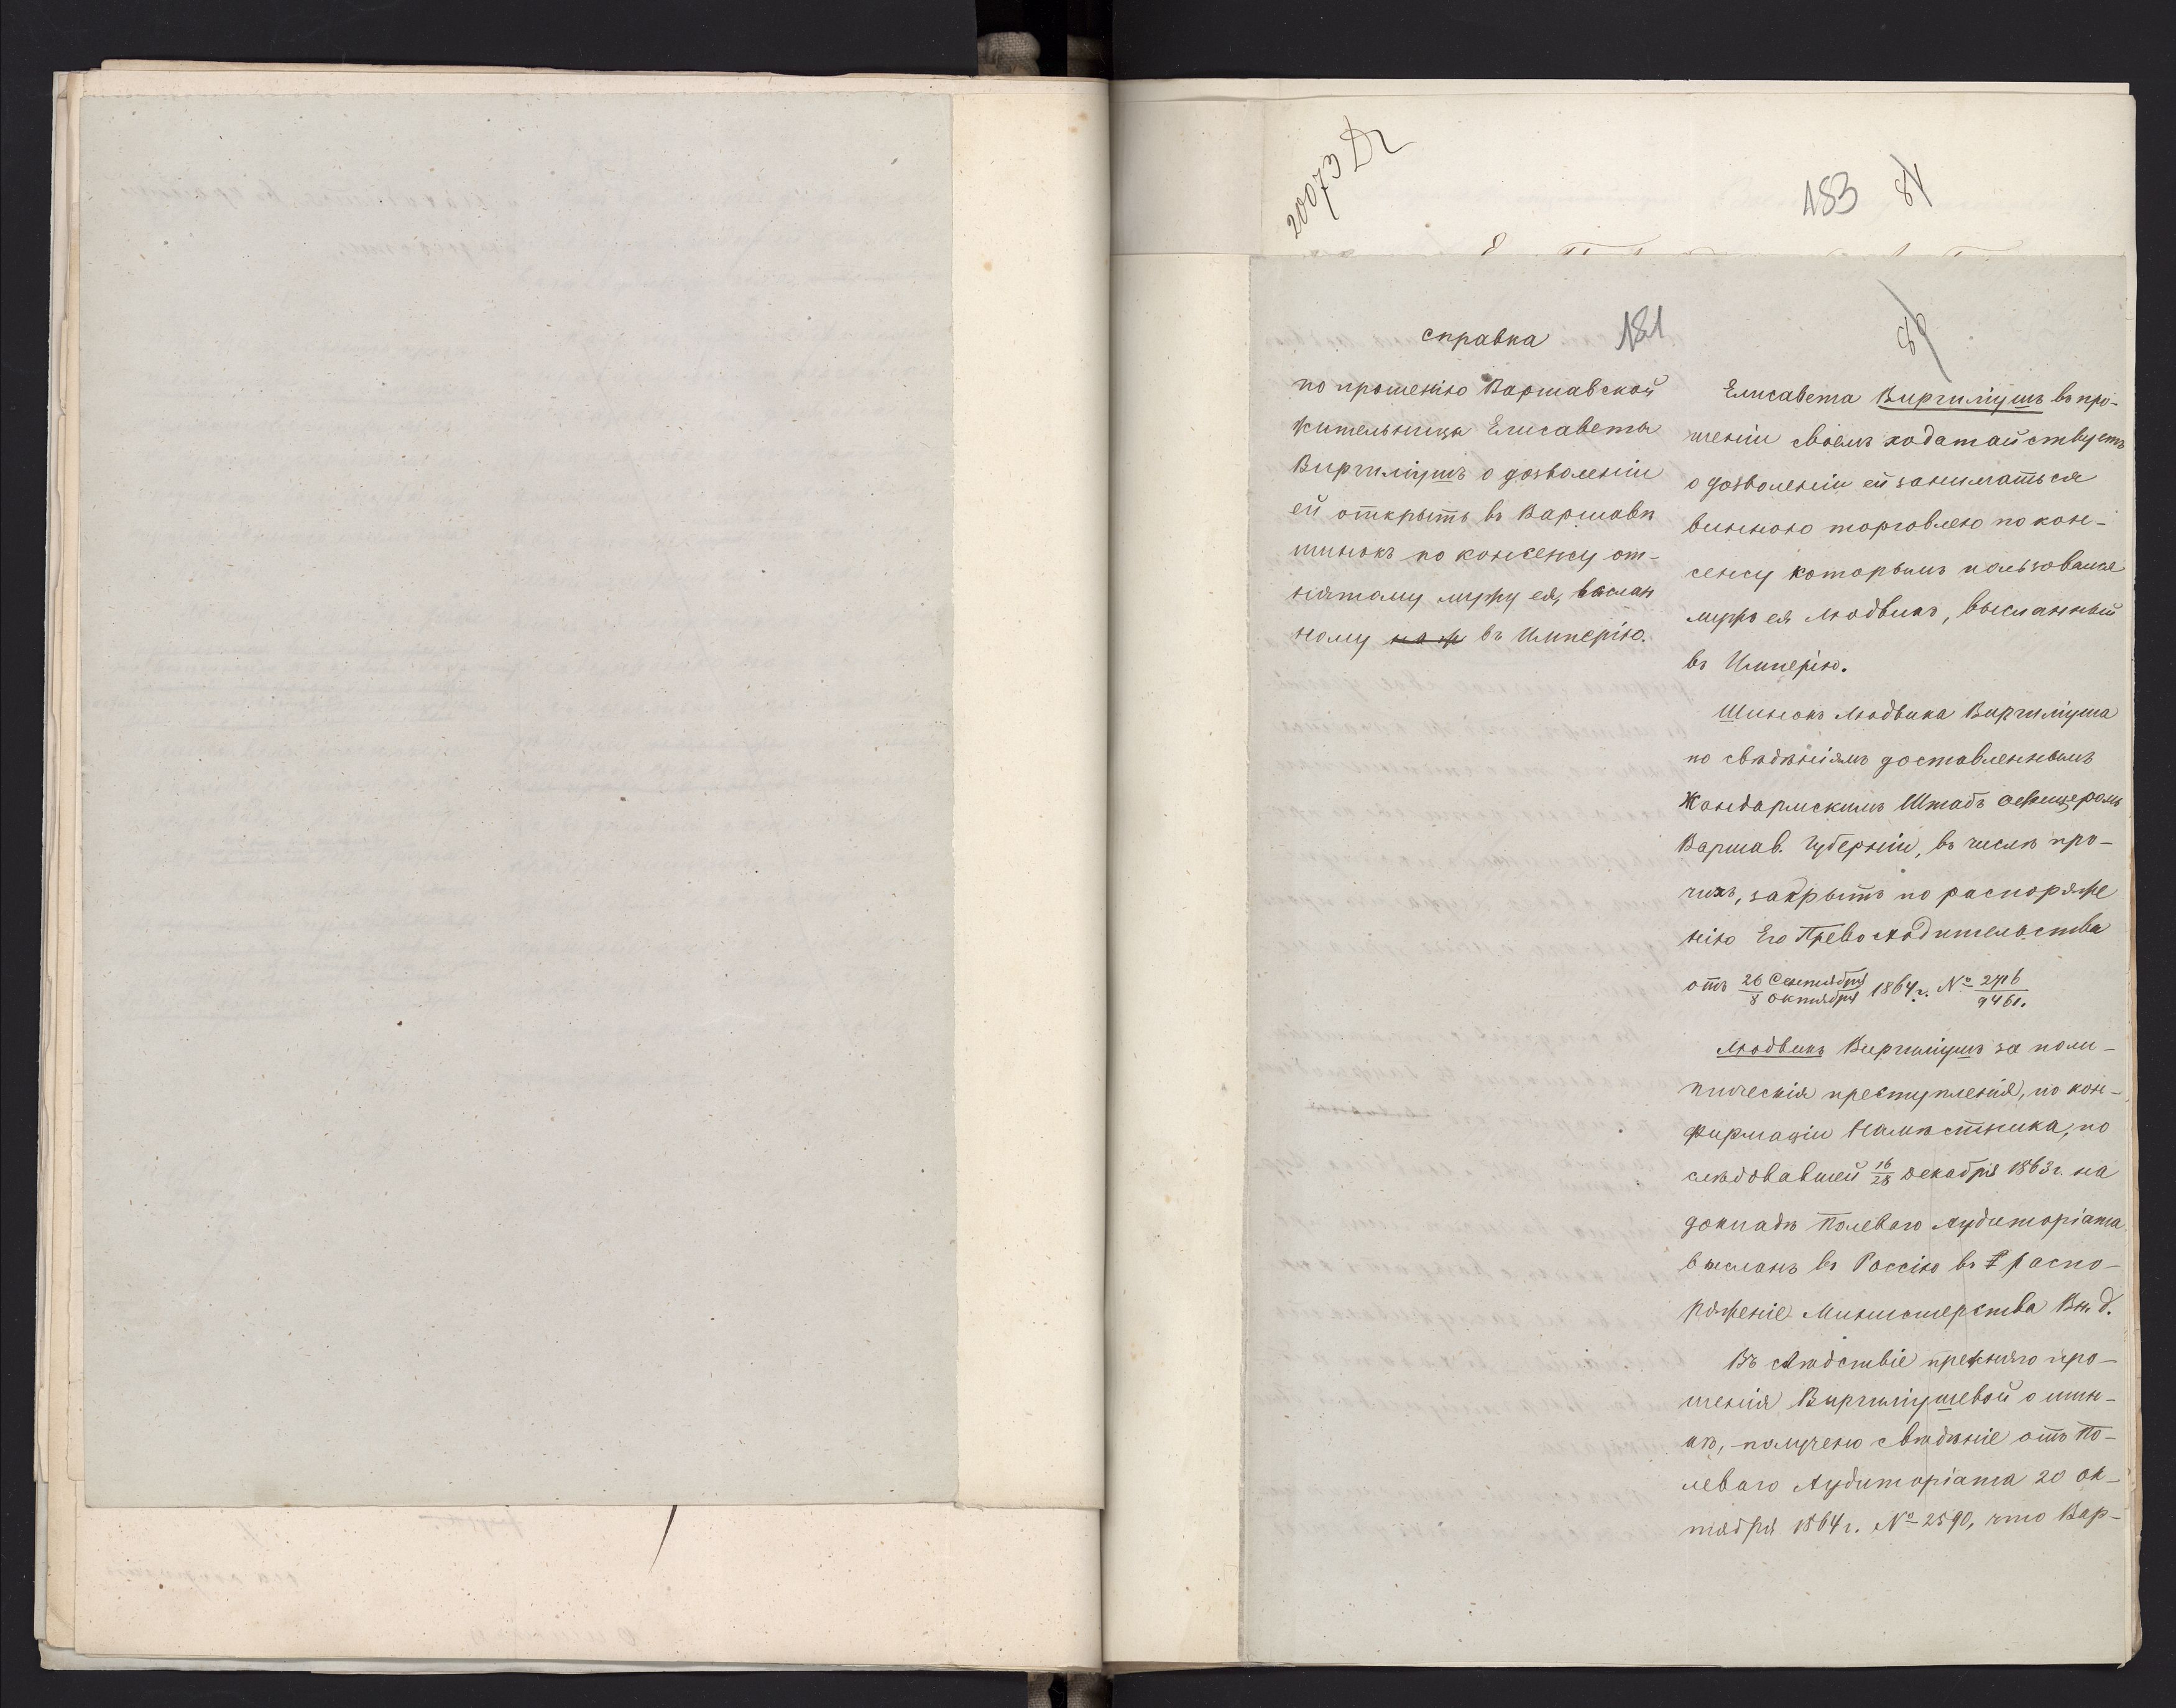 20073 Д2
183 84
справка 181
по прошенію Варшавской
жительницы Елисаветы
Виргиліушъ о дозволеніи
ей открыть въ Варшавѣ
шинокъ по консенсу от-
нятому мужу ея, выслан
ному въ Имперію.
Елисавета Виргиліушъ въ про-
шеніи своемъ ходатайствуетъ
о дозволеніи ей заниматься
винною торговлею по кон-
сенсу которымъ пользовался
мужъ ея Людвикъ, высланный
въ Имперію.
Шинокъ Людвика Виргиліуша
по свѣдѣніямъ доставленнымъ
Жандармскимъ Штабъ офицеромъ
Варшав. Губерніи, въ числѣ про-
чихъ, закрытъ по распоряже
нію Его Превосходительства
отъ 26 Сентября/8 Октября 1864 г. № 2716/9461.
Людвикъ Виргиліушъ за поли-
тическія преступленія, по кон-
фирмаціи Намѣстника, по
слѣдовавшей 16/28 декабря 1863 г. на
докладѣ Полеваго Аудиторіата
высланъ въ Россію въ распо-
ряженіе Министерства Вн. д.
Въ слѣдствіе прежняго про-
шенія Виргиліушевой о шин-
кѣ, получено свѣдѣніе отъ По-
леваго Аудиторіата 20 ок-
тября 1864 г. № 2590, что Вар-